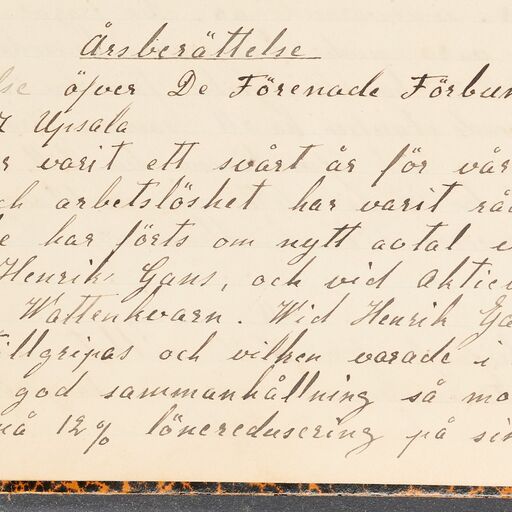 Årsberättelse
lse öfver De Förenade Förbun
Upsala
r varit ett svårt år för vår
ch arbetslöshet har varit rå
e har förts om nytt avtal e
Henrik Gans, och vid aktie
Wattenkvarn. Wid Henrik Ga
illgripas och vilken varade i
god sammanhållning så mo
nå 12% lönereducering på sin